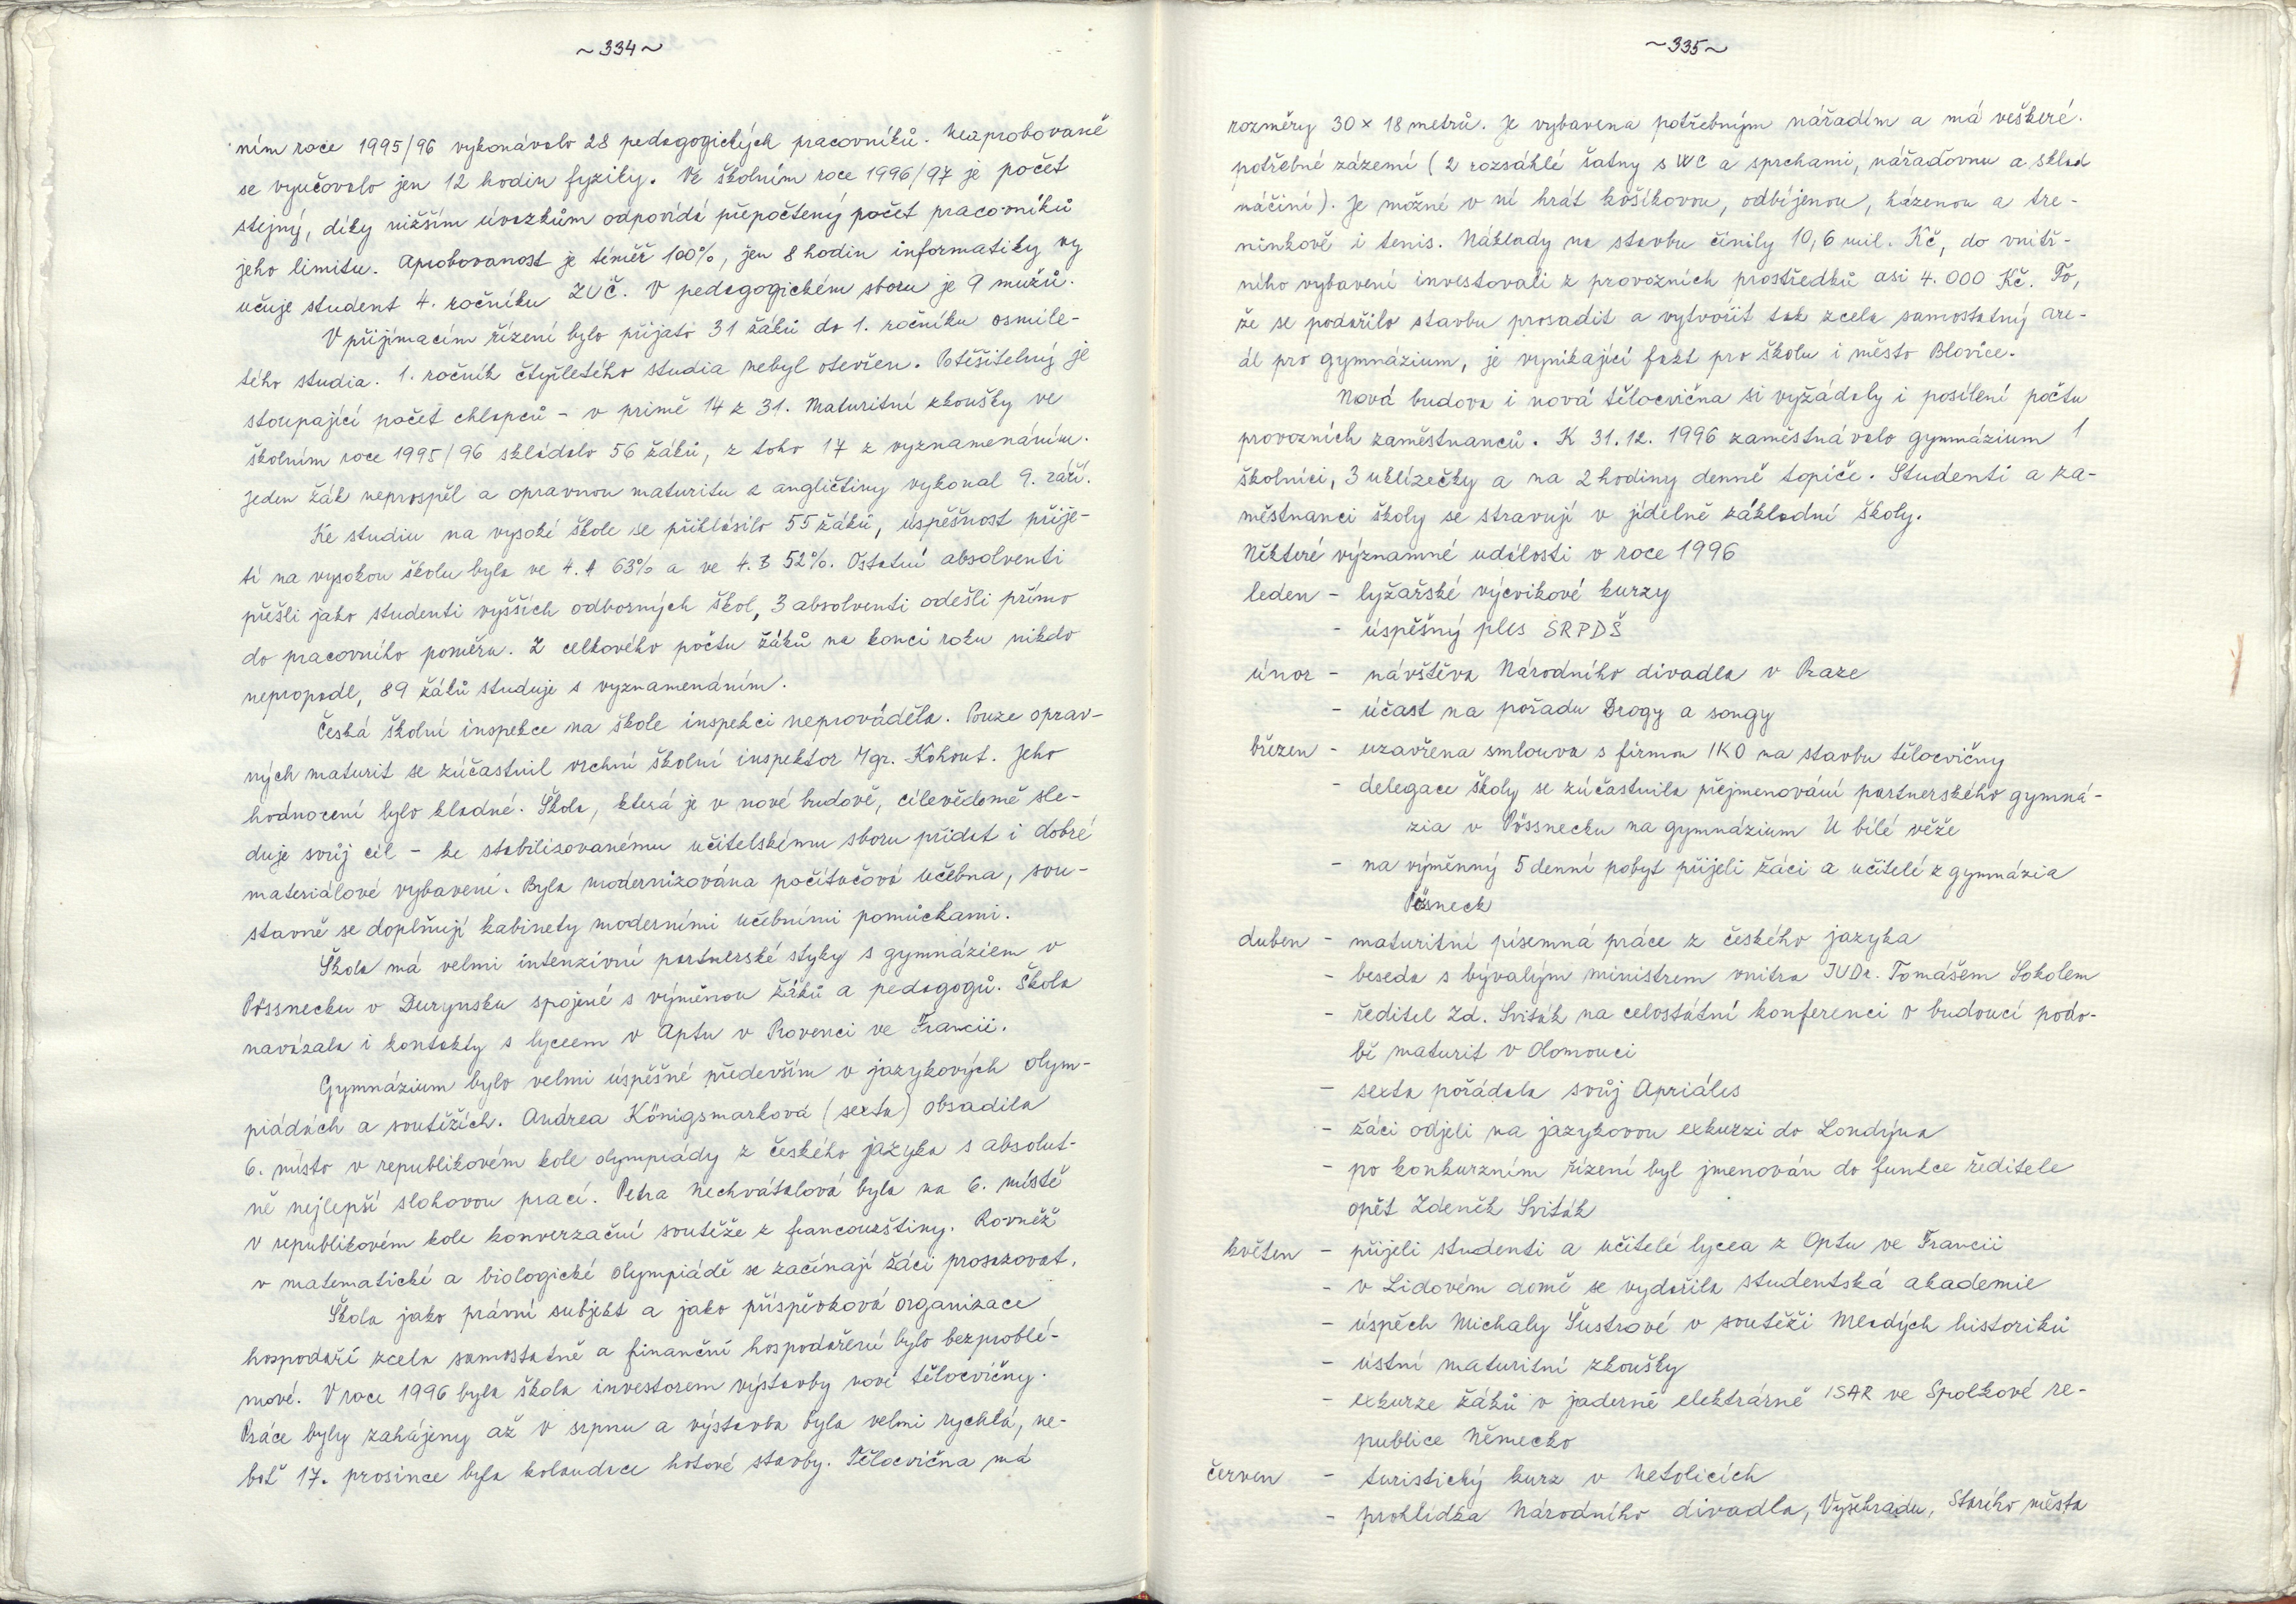 ~334~
ním roce 1995/96 vykonávalo 28 pedagogických pracovníků. Neaprobovaně
se vyučovalo jen 12 hodin fyziky. Ve školním roce 1996/97 je počet
stejný, díky nižším úvazkům odpovídá přepočtený počet pracovníků
jeho limitu. Aprobovanost je téměř 100%, jen 8 hodin informatiky vy
učuje student 4. ročníku ZUČ. V pedagogickém sboru je 9 mužů.
V přijímacím řízení bylo přijato 31 žáků do 1. ročníku osmile-
tého studia. 1. ročník čtyřletého studia nebyl otevřen. Potěšitelný je
stoupající počet chlapců - v primě 14 z 31. Maturitní zkoušky ve
školním roce 1995/96 skládalo 56 žáků, z toho 17 z vyznamenáním.
Jeden žák neprospěl a opravnou maturitu z angličtiny vykonal 9. září.
Ke studiu na vysoké škole se přihlásilo 55 žáků, úspěšnost přije-
tí na vysokou školu byla ve 4. A 63% a ve 4. B 52%. Ostatní absolventi
přešli jako studenti vyšších odborných škol, 3 absolventi odešli přímo
do pracovního poměru. Z celkového počtu žáků na konci roku nikdo
nepropadl, 89 žáků studuje s vyznamenáním.
Česká školní inspekce na škole inspekci neprováděla. Pouze oprav-
ných maturit se zúčastnil vrchní školní inspektor Mgr. Kohout. Jeho
hodnocení bylo kladné. Škola, která je v nové budově, cílevědomě sle-
duje svůj cíl - ke stabilizovanému učitelskému sboru přidat i dobré
materiálové vybavení. Byla modernizována počítačová učebna, sou-
stavně se doplňují kabinety moderními učebními pomůckami.
Škola má velmi intenzivní partnerské styky s gymnáziem v
Pössnecku v Durynsku spojené s výměnou žáků a pedagogů. Škola
navázala i kontakty s lyceem v Aptu v Provenci ve Francii.
Gymnázium bylo velmi úspěšné především v jazykových olym-
piádách a soutěžích. Andrea Königsmarková (sexta) obsadila
6. místo v republikovém kole olympiády z českého jazyka s absolut-
ně nejlepší slohovou prací. Petra Nechvátalová byla na 6. místě
v republikovém kole konverzační soutěže z francouzštiny. Rovněž
v matematické a biologické olympiádě se začínají žáci prosazovat.
Škola jako právní subjekt a jako příspěvková organizace
hospodaří zcela samostatně a finanční hospodaření bylo bezproblé-
mové. V roce 1996 byla škola investorem výstavby nové tělocvičny.
Práce byly zahájeny až v srpnu a výstavba byla velmi rychlá, ne-
boť 17. prosince byla kolaudace hotové stavby. Tělocvična má
~335~
rozměry 30 × 18 metrů. Je vybavena potřebným nářadím a má veškeré
potřebné zázemí (2 rozsáhlé šatny s WC a sprchami, nářaďovnu a sklad
náčiní). Je možné v ní hrát košíkovou, odbíjenou, házenou a tre-
ninkově i tenis. Náklady na stavbu činily 10,6 mil. Kč, do vnitř-
ního vybavení investovali z provozních prostředků asi 4.000 Kč. To,
že se podařilo stavbu prosadit a vytvořit tak zcela samostatný are-
ál pro gymnázium, je vynikající fakt pro školu i město Blovice.
Nová budova i nová tělocvična si vyžádaly i posílení počtu
provozních zaměstnanců. K 31.12. 1996 zaměstnávalo gymnázium 1
školníci, 3 uklízečky a na 2 hodiny denně topiče. Studenti a za-
městnanci školy se stravují v jídelně základní školy.
Některé významné události v roce 1996
leden - lyžařské výcvikové kurzy
- úspěšný ples SRPDŠ
únor - návštěva Národního divadla v Praze
- účast na pořadu Drogy a songy
březen - uzavřena smlouva s firmou IKO na stavbu tělocvičny
- delegace školy se zúčastnila přejmenování partnerského gymná-
zia v Pössnecku na gymnázium U bílé věže
- na výměnný 5 denní pobyt přijeli žáci a učitelé z gymnázia
Pösneck
duben - maturitní písemná práce z českého jazyka
- beseda s bývalým ministrem vnitra JUDr. Tomášem Sokolem
- ředitel Zd. Sviták na celostátní konferenci o budoucí podo-
bě maturit v Olomouci
- sexta pořádala svůj Apriáles
- žáci odjeli na jazykovou exkurzi do Londýna
- po konkurzním řízení byl jmenován do funkce ředitele
opět Zdeněk Sviták
květen - přijeli studenti a učitelé lycea z Aptu ve Francii
- v Lidovém domě se vydařila studentská akademie
- úspěch Michaly Šustrové v soutěži Mladých historiků
- ústní maturitní zkoušky
- exkurze žáků v jaderné elektrárně ISAR ve Spolkové re-
publice Německo
červen - turistický kurz v Netolicích
- prohlídka Národního divadla, Vyšehradu, Starého města